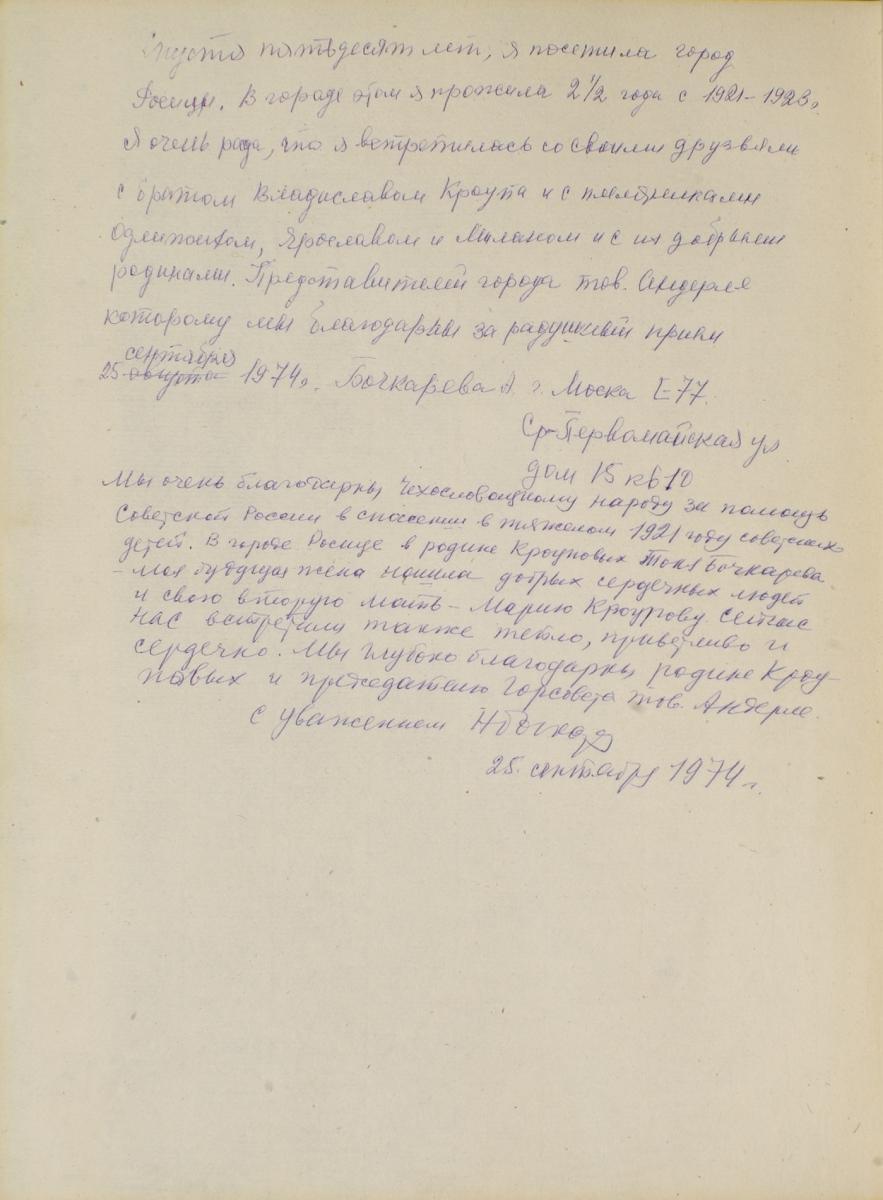 Спустя пятьдесят лет, я посетила город
Росицы. В городе этом я прожила 2 1/2 года с 1921-1923г.
Я очень рада, что я встретилась со своими друзьями
с братом Владиславом Кроупа и с племянниками
Ярославом и Миланом и с их добрыми
родинами. Представителей города тов. Андерле
которому мы благодарны за радушный прием
сентября
25 августа 1974г. Бочкарева А г. Москва Е-77.
Ср-Первомайская ул
дом 15 кв 10
Мы очень благодарны Чехословацкому народу за помощь
Советской России в спасении в тяжелом 1921 году советских
детей. В городе Росице в родине Кроуповых Тоня Бочкарева
- моя будущая жена нашла добрых сердечных людей
и свою вторую мать - Марию Кроупову. Сейчас
нас встретили также тепло, приветливо и
сердечно. Мы глубоко благодарны родине Кроу-
повых и председателю Горсовета тов. Андерле.
С уважением
25. сентября 1974 г.